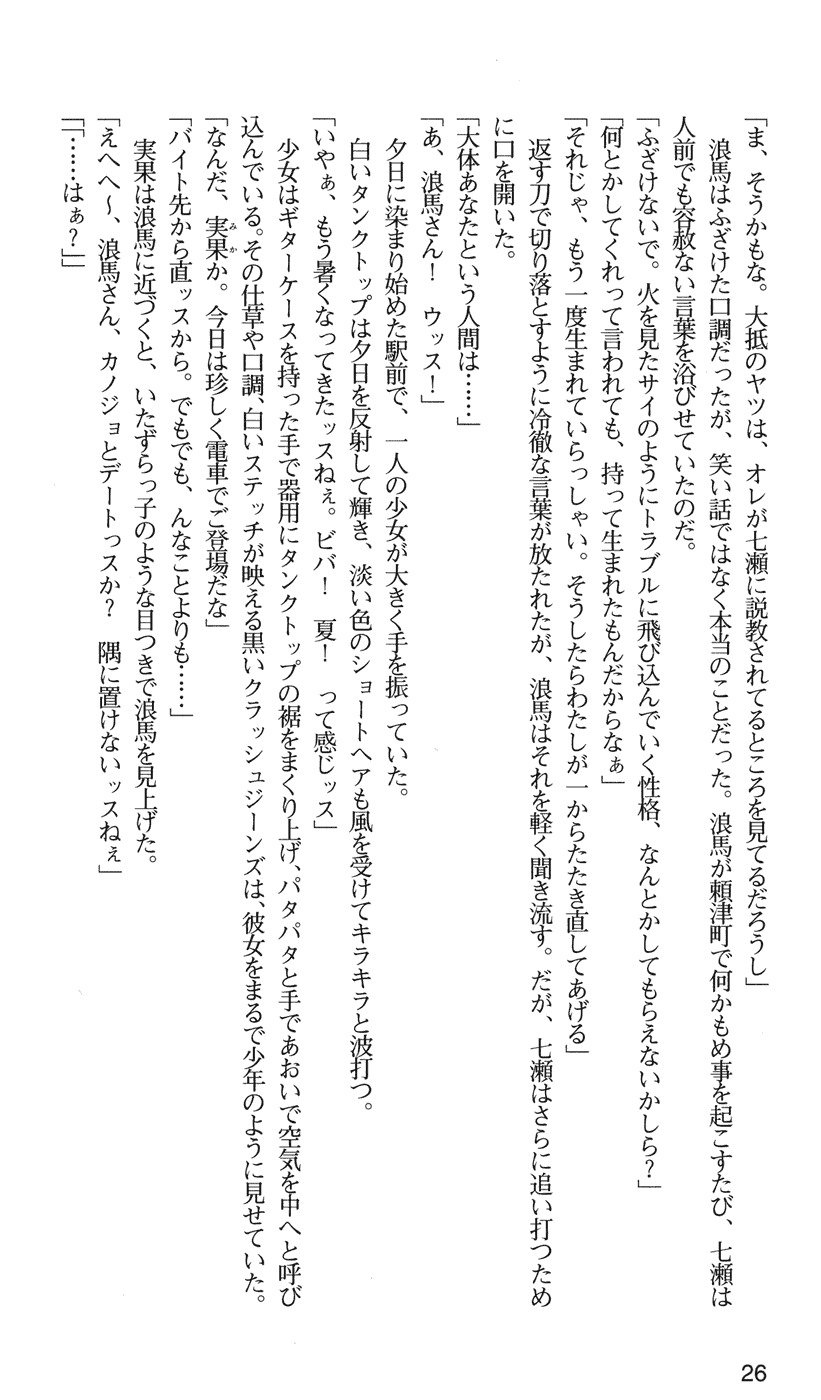 「ま、そうかもな。大抵のヤツは、オレが七瀬に説教されてるところを見てるだろうし」
　浪馬はふざけた口調だったが、笑い話ではなく本当のことだった。浪馬が頼津町で何かもめ事を起こすたび、七瀬は
人前でも容赦ない言葉を浴びせていたのだ。
「ふざけないで。火を見たサイのようにトラブルに飛び込んでいく性格、なんとかしてもらえないかしら？」
「何とかしてくれって言われても、持って生まれたもんだからなぁ」
「それじゃ、もう一度生まれていらっしゃい。そうしたらわたしが一からたたき直してあげる」
　返す刀で切り落とすように冷徹な言葉が放たれたが、浪馬はそれを軽く聞き流す。だが、七瀬はさらに追い打つため
に口を開いた。
「大体あなたという人間は……」
「あ、浪馬さん！　ウッス！」
　夕日に染まり始めた駅前で、一人の少女が大きく手を振っていた。
　白いタンクトップは夕日を反射して輝き、淡い色のショートヘアも風を受けてキラキラと波打つ。
「いやぁ、もう暑くなってきたッスねぇ。ビバ！　夏！　って感じッス」
　少女はギターケースを持った手で器用にタンクトップの裾をまくり上げ、パタパタと手であおいで空気を中へと呼び
込んでいる。その仕草や口調、白いステッチが映える黒いクラッシュジーンズは、彼女をまるで少年のように見せていた。
「なんだ、実果か。今日は珍しく電車でご登場だな」
みか
「バイト先から直ッスから。でもでも、んなことよりも……」
　実果は浪馬に近づくと、いたずらっ子のような目つきで浪馬を見上げた。
「えへへ〜、浪馬さん、カノジョとデートっスか？　隅に置けないッスねぇ」
「「……はぁ？」」
26